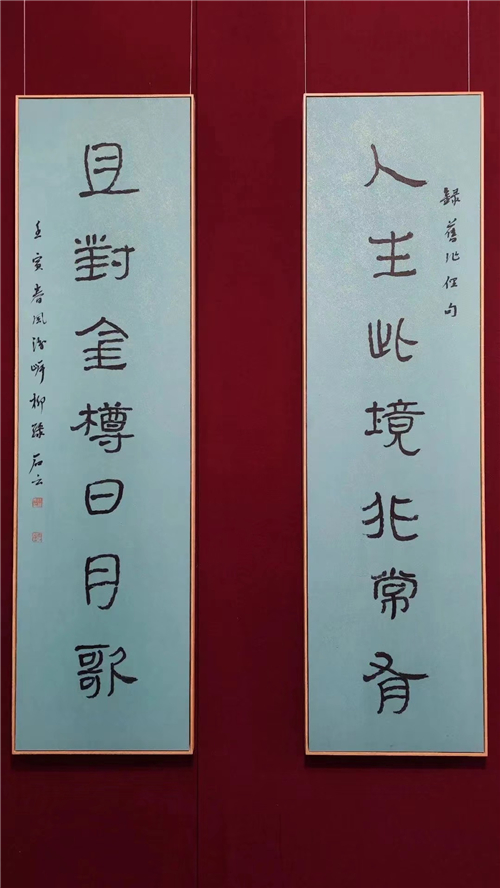 人生此境非常有
錄舊作句
且對金樽日月歌
壬寅春風畔柳石云